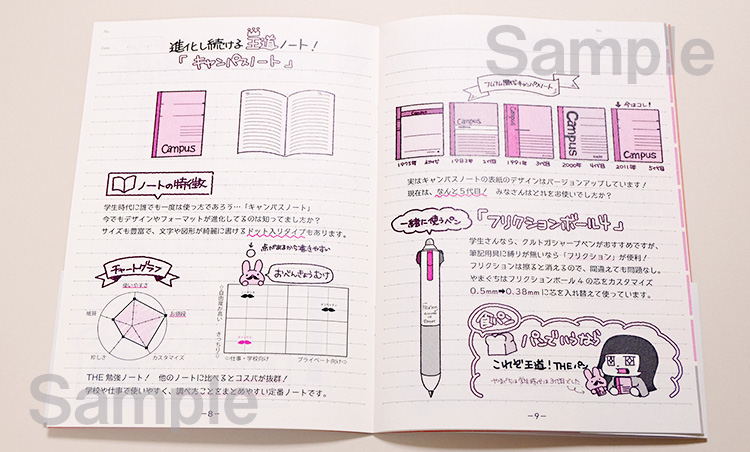 Sample
進化し続ける王道ノート!
「キャンパスノート」
Campus
ノートの特徴
学生時代に誰でも一度は使った方であろう…「キャンパスノート」
今でもデザインやフォーマットが進化してるのは知ってました か?
サイズも豊富で、文字や図形が綺麗に書けるドット入りタイプもあります。
点があるから書きやすい
チャートグラフ
おべんきょうむけ
使いやすさ
お値段
カスタマイズ
粉しさ
紙質
☆自由度が高い
きっちり☆
☆仕事・学校向け
プライベート向け☆
THE 勉強ノート! 他のノートに比べるとコスパが抜群!
学校や仕事で使いやすく、調べたことをまとめやすい定番ノートです。
Sample
-8-
歴代キャンパスノート
今はコレ!
Campus
Campus
Campus
Campus
Campus
1975年 初代
1983年 2代目
1991年 3代目
2000年 4代目
2011年 5代目
実はキャンパスノートの表紙のデザインはバージョンアップしています!
現在は、なんと5代目! みなさんはどれをお使いでしたか?
一緒に使うペン
「フリクションボール4」
学生さんなら、クルトガシャープペンがおすすめですが、
筆記用具に縛りが無いなら「フリクション」が便利!
フリクションは擦ると消えるので、間違えても問題なし。
やまぐちはフリクションボール4の芯をカスタマイズ
0.5mm➡0.38mmに芯を入れ替えて使っています。
食パン
パンでいうなら
これぞ王道!THEパン
やまぐちは学生時代は3代目でした
-9-
Sample